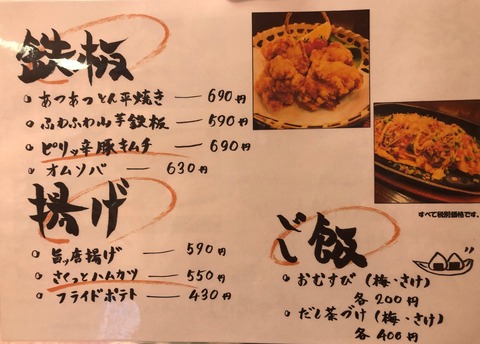 鉄板
あつあつとん平焼き ― 690円
ふわふわ山芋鉄板 ― 590円
ピリッ辛豚キムチ ― 690円
オムソバ ― 630円
揚げ
旨ッ唐揚げ ― 590円
さくっとハムカツ ― 550円
フライドポテト ― 430円
すべて税別価格です。
飯
めし
おむすび(梅・さけ)
各200円
だし茶づけ(梅・さけ)
各400円